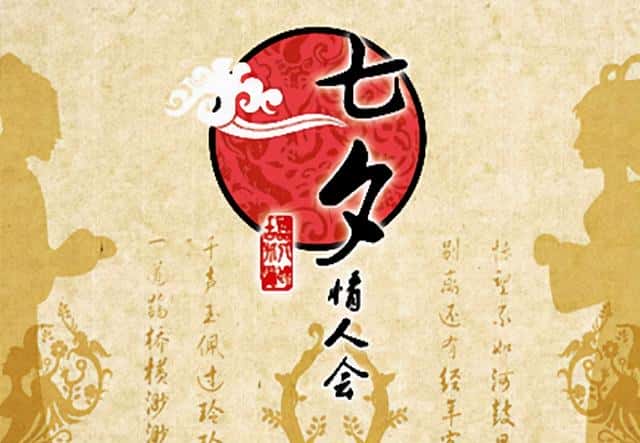 七夕
情人会
一道鹊桥横渺渺
千声玉佩过玲玲
别离还有经年客
怅望不如河鼓